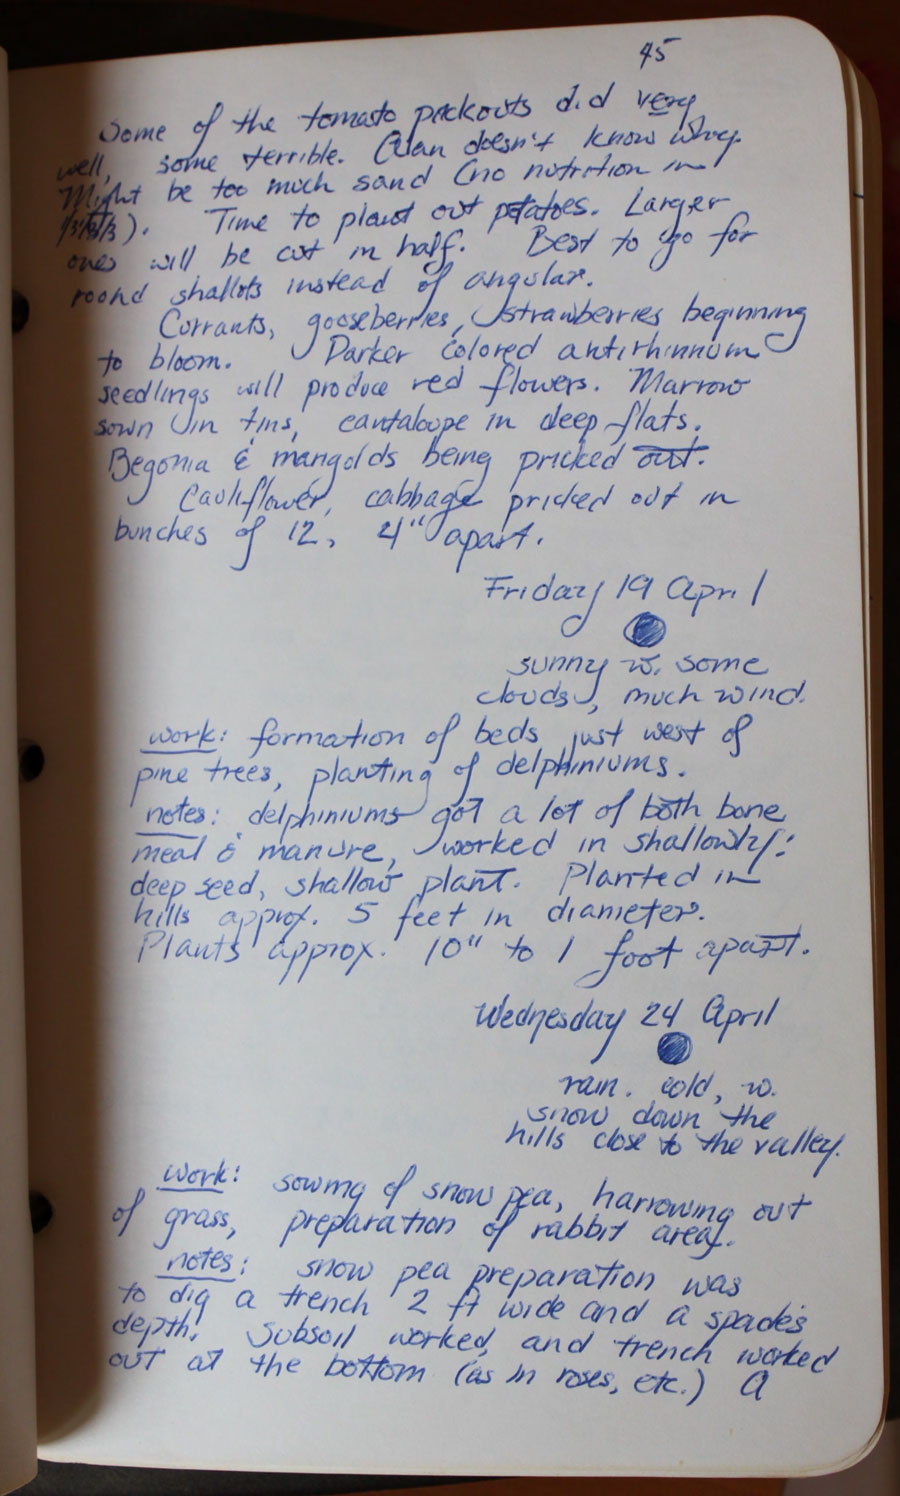 45
Some of the tomato prickouts did very
well, some terrible. Alan doesn't know why.
Might be too much sand (no nutrition in
1/3 1/3 1/3). Time to plant out potatoes. Larger
ones will be cut in half. Best to go for
round shallots instead of angular.
Currants, gooseberries, strawberries beginning
to bloom. Darker colored antirhinnum
seedlings will produce red flowers. Marrow
sown in tins, cantaloupe in deep flats.
Begonia & mangolds being pricked out.
Cauliflower, cabbage pricked out in
bunches of 12, 4" apart.
Friday 19 April
sunny w. some
clouds, much wind.
work: formation of beds just west of
pine trees, planting of delphiniums.
notes: delphiniums got a lot of both bone
meal & manure, worked in shallowly:
deep seed, shallow plant. Planted in
hills approx. 5 feet in diameter.
Plants approx. 10" to 1 foot apart.
Wednesday 24 April
rain. cold, w.
snow down the
hills close to the valley.
work: sowing of snow pea, harrowing out
of grass, preparation of rabbit area.
notes: snow pea preparation was
to dig a trench 2 ft wide and a spade's
depth. Subsoil worked, and trench worked
out at the bottom (as in roses, etc.) A